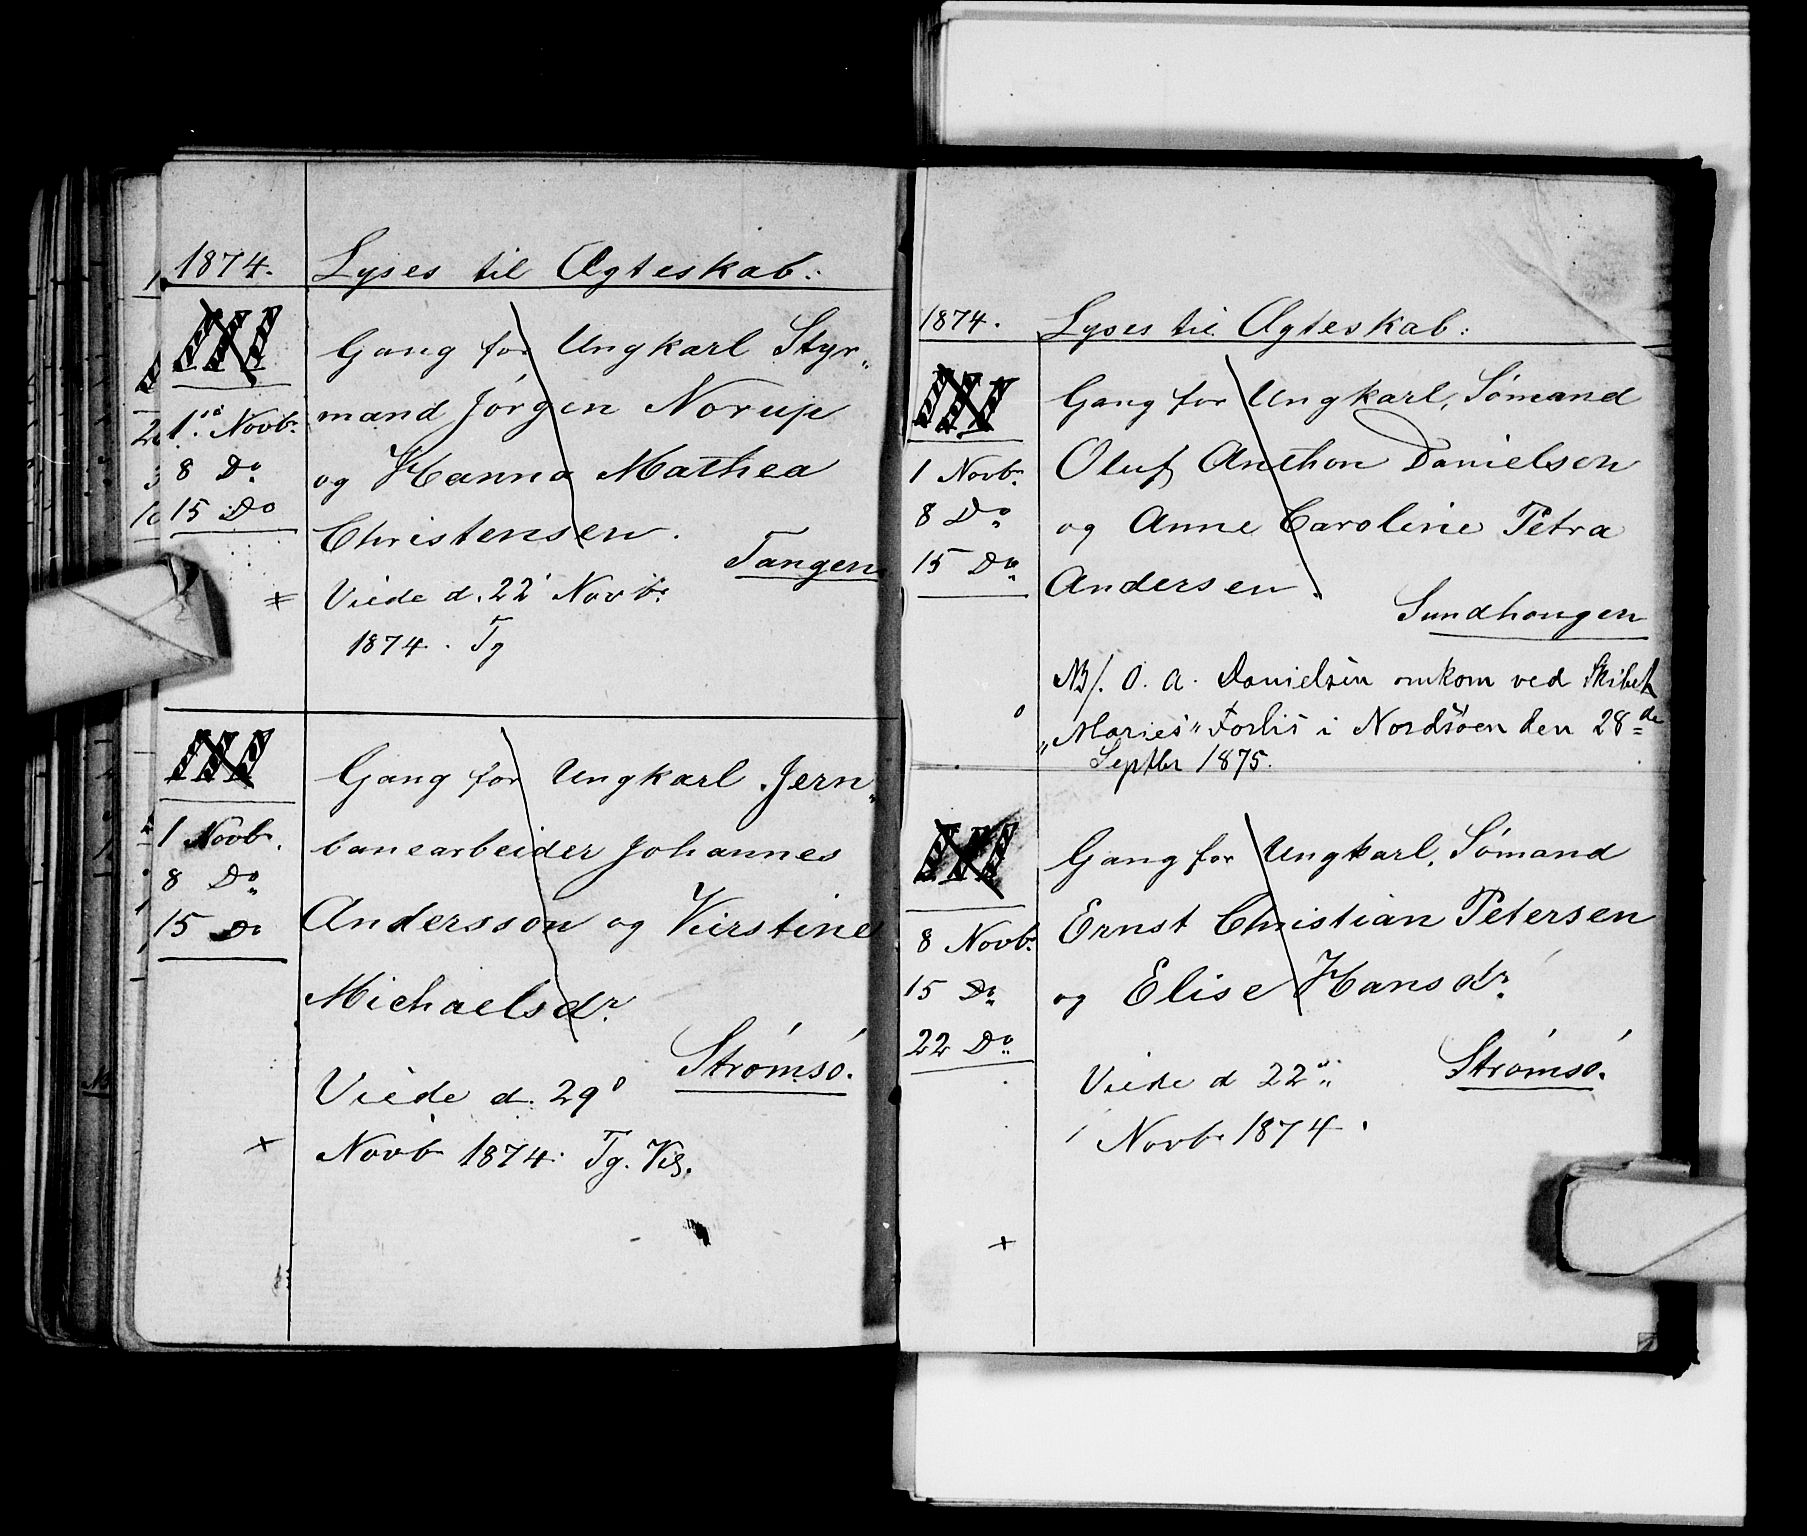 1874. Lyses til Ægteskab:
III Gang for Ungkarl Styr„
mand Jörgen Norup
1ste Novbr.
og Hanna Mathea
8 Do
15 Do
Christensen.
Tangen
Viede d. 22' Novbr
1874. Tg
III Gang for Ungkarl Jern„
1 Novbr.
banearbeider Johannes
8 Do
15 Do
Andersson og Kirstine
Michaelsdr.
Strømsö.
Viede d. 29
Novb 1874. Tg. Kis.
1874. Lyses til Ægteskab:
III Gang for Ungkarl, Sømand
1 Novbr.
Oluf Anthon Danielsen
8 Do
og Anne Caroline Petra
15 Do
Andersen.
Sundhougen
NB/. O. A. Danielsen omkom ved Skibet
„Maries" Forlis i Nordsöen den 28de
Septbr 1875.
III Gang for Ungkarl, Sømand
8 Novbr.
Ernst Christian Petersen
15 Do
og Elise Hansdr.
22 Do
Strømsö.
Viede d 22
Novbr 1874.